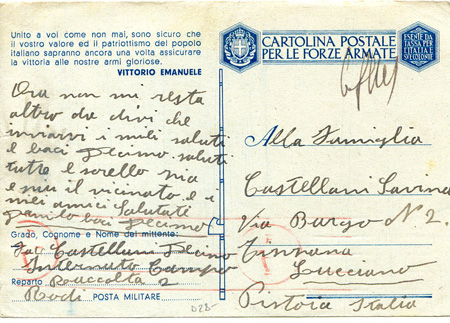 Unito a voi come non mai, sono sicuro che
il vostro valore ed il patriottismo del popolo
italiano sapranno ancora una volta assicurare
la vittoria alle nostre armi gloriose.
VITTORIO EMANUELE
CARTOLINA POSTALE
PER LE FORZE ARMATE
ESENTE DA
TASSA PER
L'ITALIA E
SUE COLONIE
Ora non mi resta
altro da dirvi che
inviarvi i miei saluti
e baci Decimo saluti
tutte e sorelle zia
e il vicinato e i
miei amici Salutate
baci Decimo
Grado, Cognome e Nome del mittente:
Castellani Decimo
Internato Campo
Reparto Raccolta 2
Rodi POSTA MILITARE
D28-
Alla Famiglia
Castellani Savina
Via Borgo N° 2.
Lucciano
Pistoia Italia